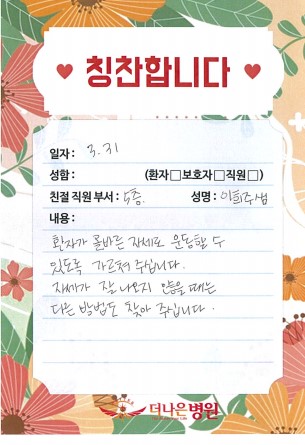 칭찬합니다
일자 : 3. 31
성함 : (환자□보호자□직원□)
친절 직원 부서 : 5층 성명 : 이희주쌤
내용 :
환자가 올바른 자세로 운동할 수
있도록 가르쳐 주십니다.
자세가 잘 나오지 않을 때는
다른 방법도 찾아 주십니다.
더나은병원